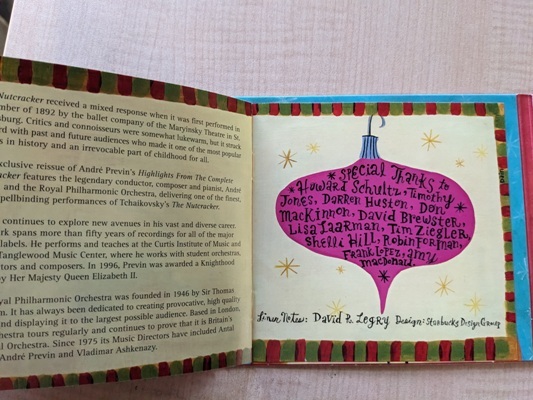 Nutcracker received a mixed response when it was first performed in
mber of 1892 by the ballet company of the Maryinsky Theatre in St.
sburg. Critics and connoisseurs were somewhat lukewarm, but it struck
rd with past and future audiences who made it one of the most popular
s in history and an irrevocable part of childhood for all.
xclusive reissue of André Previn's Highlights From The Complete
acker features the legendary conductor, composer and pianist, André
and the Royal Philharmonic Orchestra, delivering one of the finest,
pellbinding performances of Tchaikovsky's The Nutcracker.
continues to explore new avenues in his vast and diverse career.
rk spans more than fifty years of recordings for all of the major
labels. He performs and teaches at the Curtis Institute of Music and
Tanglewood Music Center, where he works with student orchestras,
ctors and composers. In 1996, Previn was awarded a Knighthood
by Her Majesty Queen Elizabeth II.
yal Philharmonic Orchestra was founded in 1946 by Sir Thomas
m. It has always been dedicated to creating provocative, high quality
and displaying it to the largest possible audience. Based in London,
chestra tours regularly and continues to prove that it is Britain's
l Orchestra. Since 1975 its Music Directors have included Antal
André Previn and Vladimar Ashkenazy.
Special Thanks to
Howard Schultz, Timothy
Jones, Darren Huston, Don
MacKinnon, David Brewster,
Lisa Laarman, Tim Ziegler,
Shelli Hill, Robin Forman,
Frank Lopez, Amy
MacDonald.
Liner Notes: David P. Legry Design: Starbucks Design Group